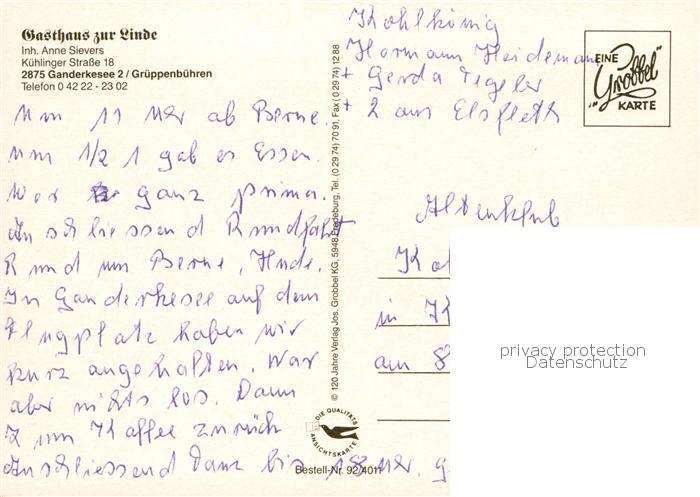 Gasthaus zur Linde
Inh. Anne Sievers
Kühlinger Straße 18
2875 Ganderkesee 2 / Grüppenbühren
Telefon 0 42 22 - 23 02
Um 11 Uhr ab Berne.
Um 1/2 1 gab es Essen.
War ganz prima.
Anschliessend Rundfahrt
Rund um Berne, Hude.
In Ganderkesee auf dem
Flugplatz haben wir
kurz angehalten. War
aber nichts los. Dann
zum Kaffee zurück
Anschliessend Tanz bis 18 Uhr.
© 120 Jahre Verlag Jos. Grobbel KG, 5948 Fredeburg, Tel. (0 29 74) 70 91, Fax (0 29 74) 12 88
DIE QUALITÄTS
ANSICHTSKARTE
Bestell-Nr. 92/4011
Kohlkönig
Hermann Heidemann
+ Gerda Tegeler
+ 2 aus Elsfleth
EINE
"Grobbel"
KARTE
Altenklub
in
am 8
privacy protection
Datenschutz